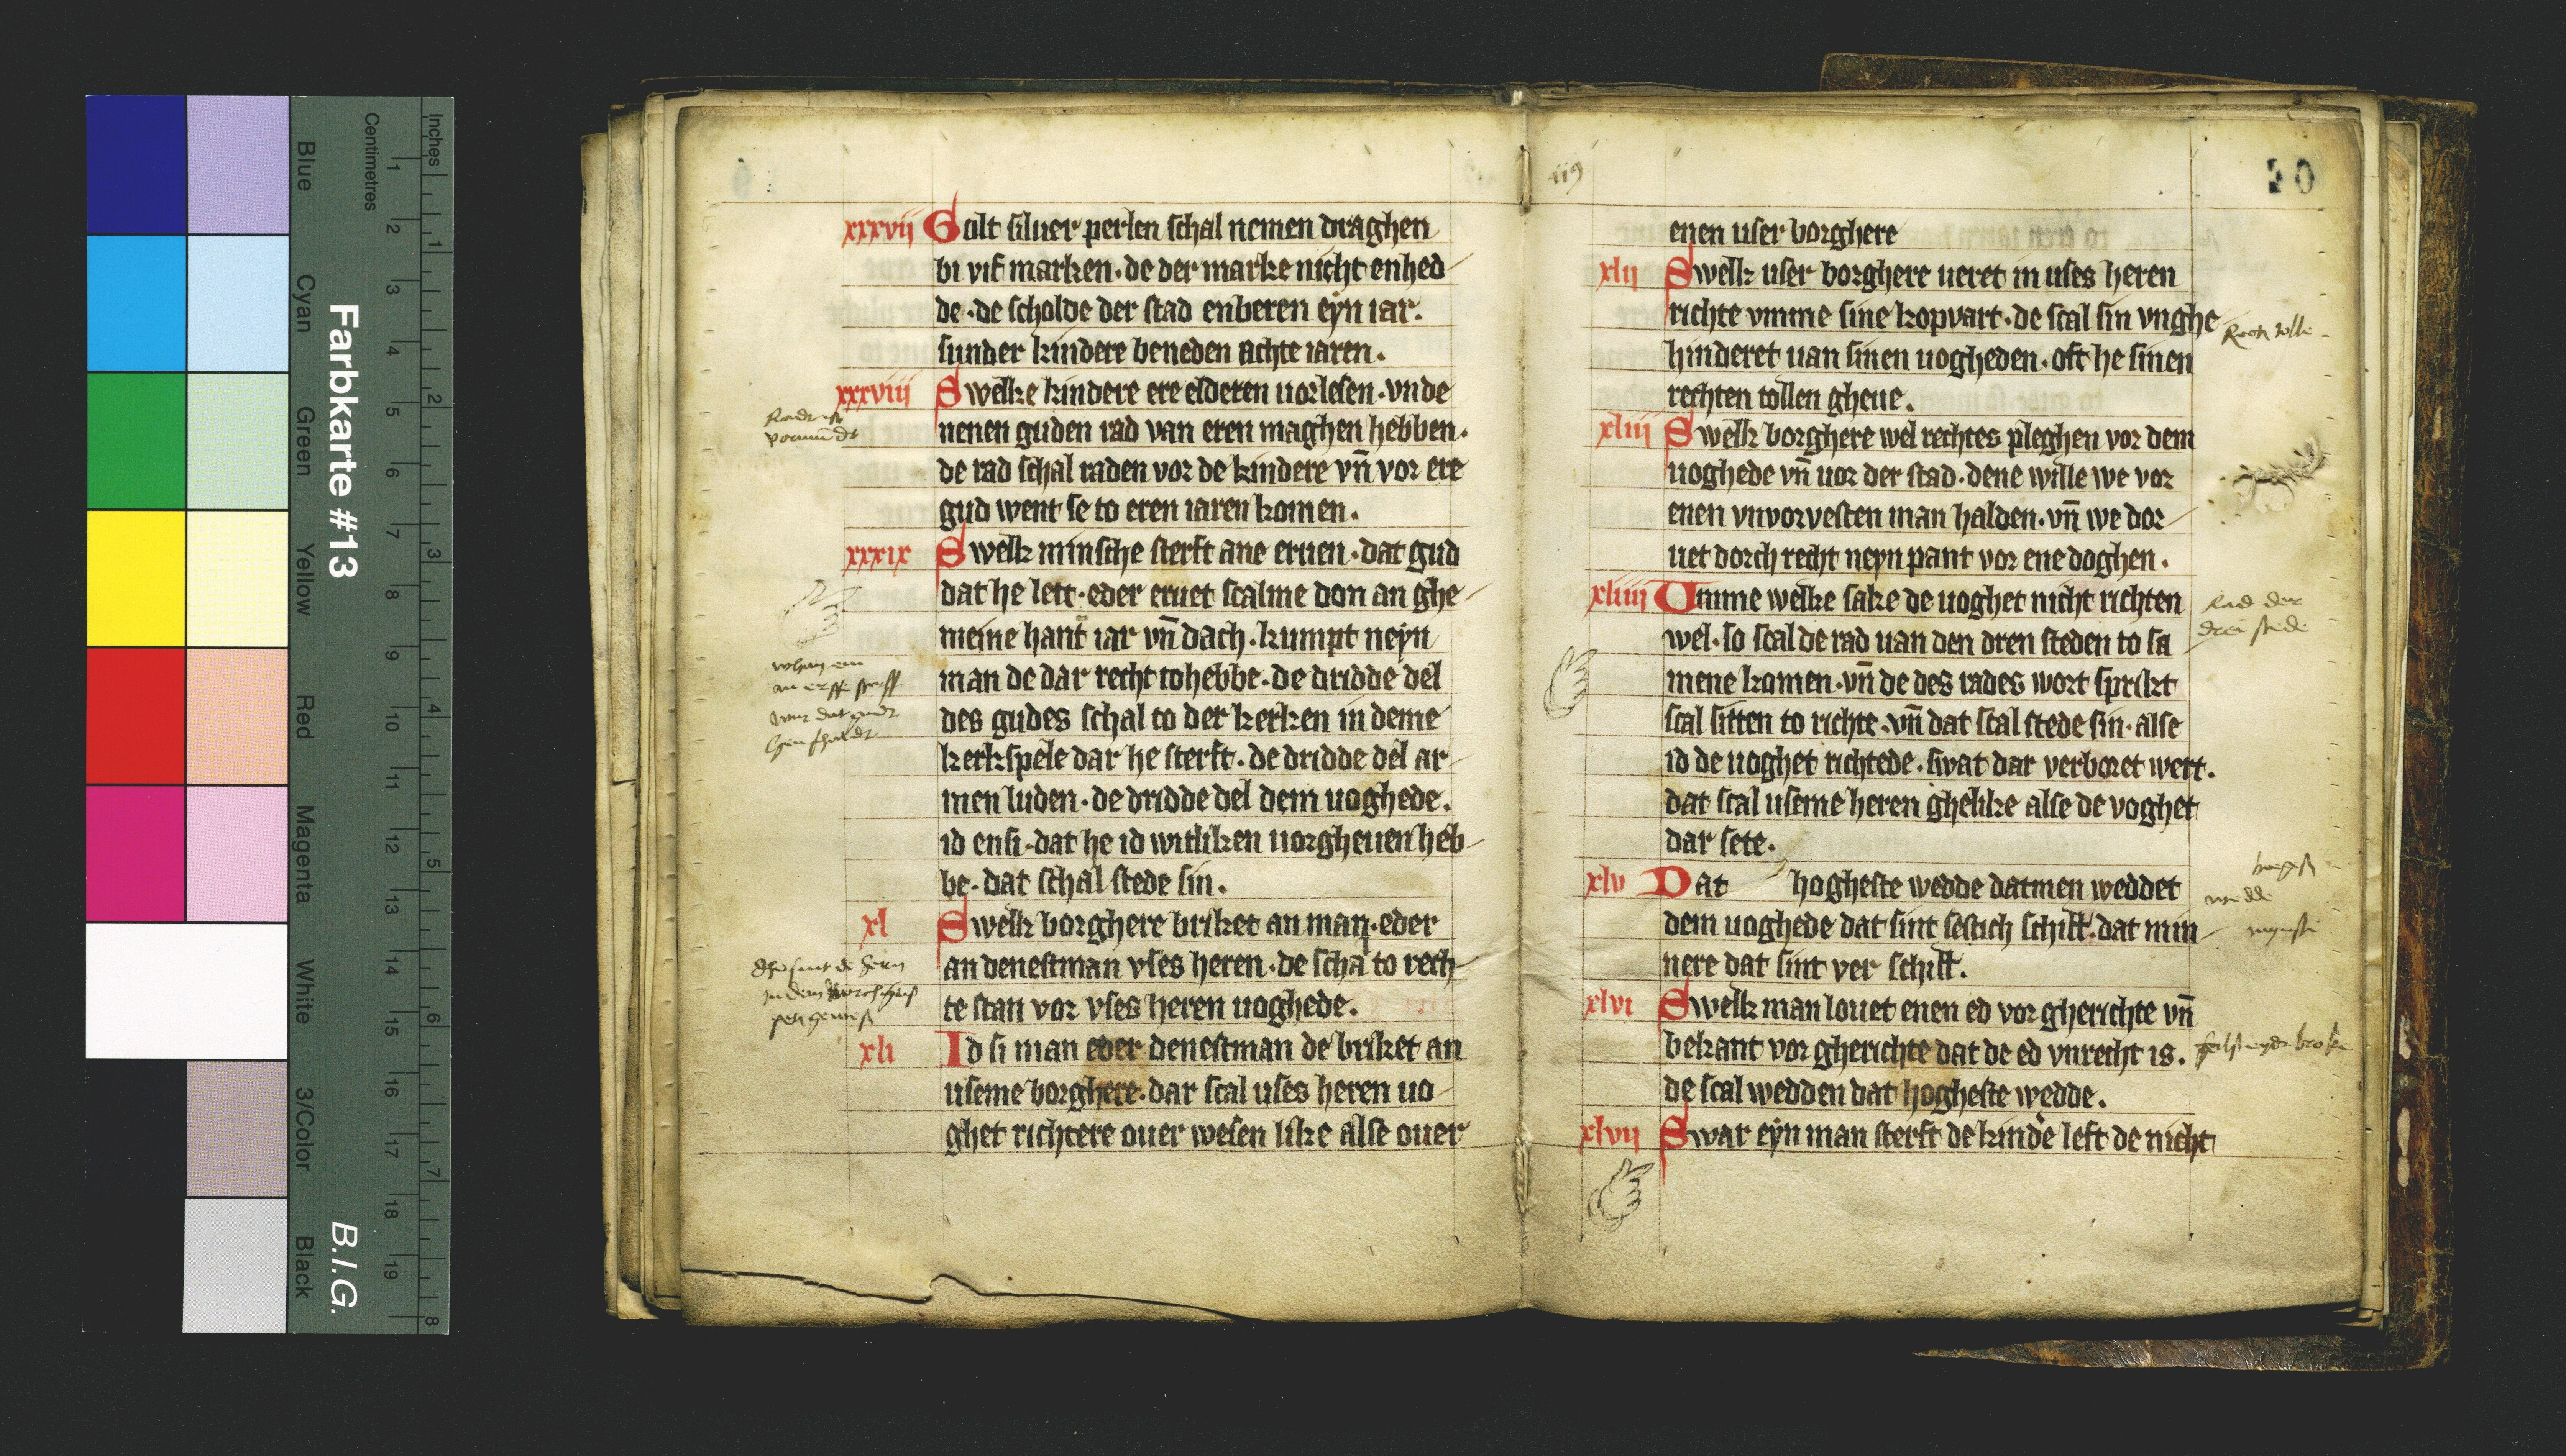 xxxvii Golt siluer perlen schal nemen draghen
bi vif marken · de der marke nicht enhed
de · de scholde der stad enberen eyn iar.
sunder kindere beneden achte iaren.
xxxviii Swelke kindere ere elderen uorlesen · vnde
nenen guden rad van eren maghen hebben.
de rad schal raden vor de kindere vn̄ vor ere
gud went se to eren iaren komen.
xxxix Swelk minsche sterft ane eruen · dat gud
dat he lett · eder eruet scalme don an ghe
meine hant iar vn̄ dach · kumpt neyn
man de dar recht tohebbe · de dridde del
des gudes schal to der kerken in deme
kerkspele dar he sterft · de dridde del ar
men luden · de dridde del dem uoghede.
id ensi · dat he id witliken uorgheuen heb
be · dat schal stede sin.
xl Swelk borghere briket an man · eder
an denestman vses heren · de scha to rech
te stan vor vses heren uoghede.
xli Id si man eder denestman de briket an
useme borghere · dar scal uses heren uo
ghet richtere ouer wesen like alse ouer
119
20
enen user borghere
xlii Swelk user borghere ueret in uses heren
richte vmme sine kopvart · de scal sin vnghe
hinderet uan sinen uogheden · oft he sinen
rechten tollen gheue.
xliii Swelk borghere wel rechtes pleghen vor dem
uoghede vn̄ uor der stad · dene wille we vor
enen vnvorvesten man halden · vn̄ we dor
uet dorch recht neyn pant vor ene doghen.
xliiii Umme welke sake de uoghet nicht richten
wel · so scal de rad uan den dren steden to sa
mene komen · vn̄ de des rades wort sprikt
scal sitten to richte · vn̄ dat scal stede sin · alse
id de uoghet richtede · swat dar verboret wert.
dat scal useme heren ghelike alse de voghet
dar sete.
Rad der
drei stede
xlv Dat hogheste wedde datmen weddet
dem uoghede dat sint sestich schill · dat min
nere dat sint ver schill.
xlvi Swelk man louet enen ed vor gherichte vn̄
bekant vor gherichte dat de ed vnrecht is.
de scal wedden dat hogheste wedde.
xlvii Swar eyn man sterft de kinde left de nicht
Farbkarte #13
B.I.G.
Inches
Centimetres
1 2 3 4 5 6 7 8 9 10 11 12 13 14 15 16 17 18 19
1 2 3 4 5 6 7 8
Blue
Cyan
Green
Yellow
Red
Magenta
White
3/Color
Black